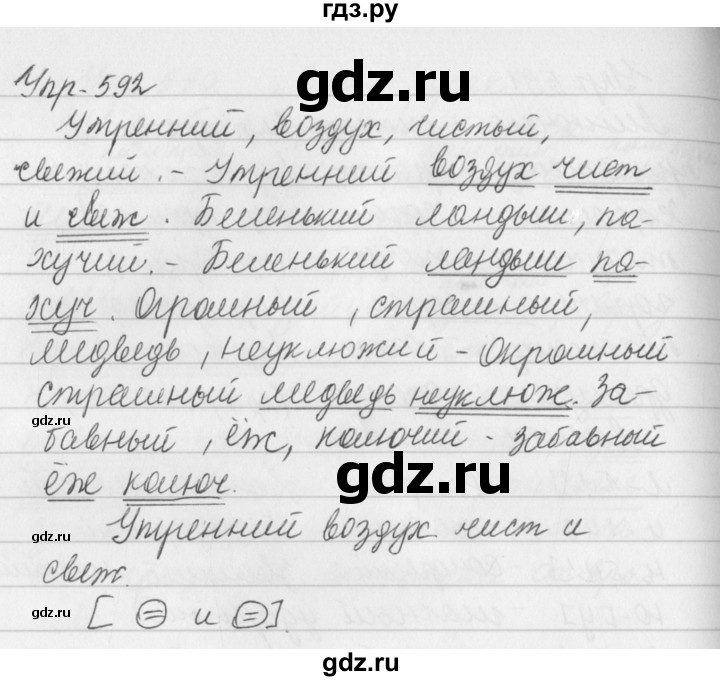 гдз.ру
Упр-592
gdz.ru
Утренний, воздух, чистый,
свежий. - Утренний воздух чист
и свеж. Беленький ландыш, па-
хучий. - Беленький ландыш па-
хуч. Огромный, страшный,
медведь, неуклюжий - Огромный
страшный медведь неуклюж. За-
gdz.ru
бавный, ёж, колючий - забавный
ёж колюч.
gdz.ru
Утренний воздух чист и
gdz.ru
свеж
gdz.ru
[ = и = ].
gdz.ru